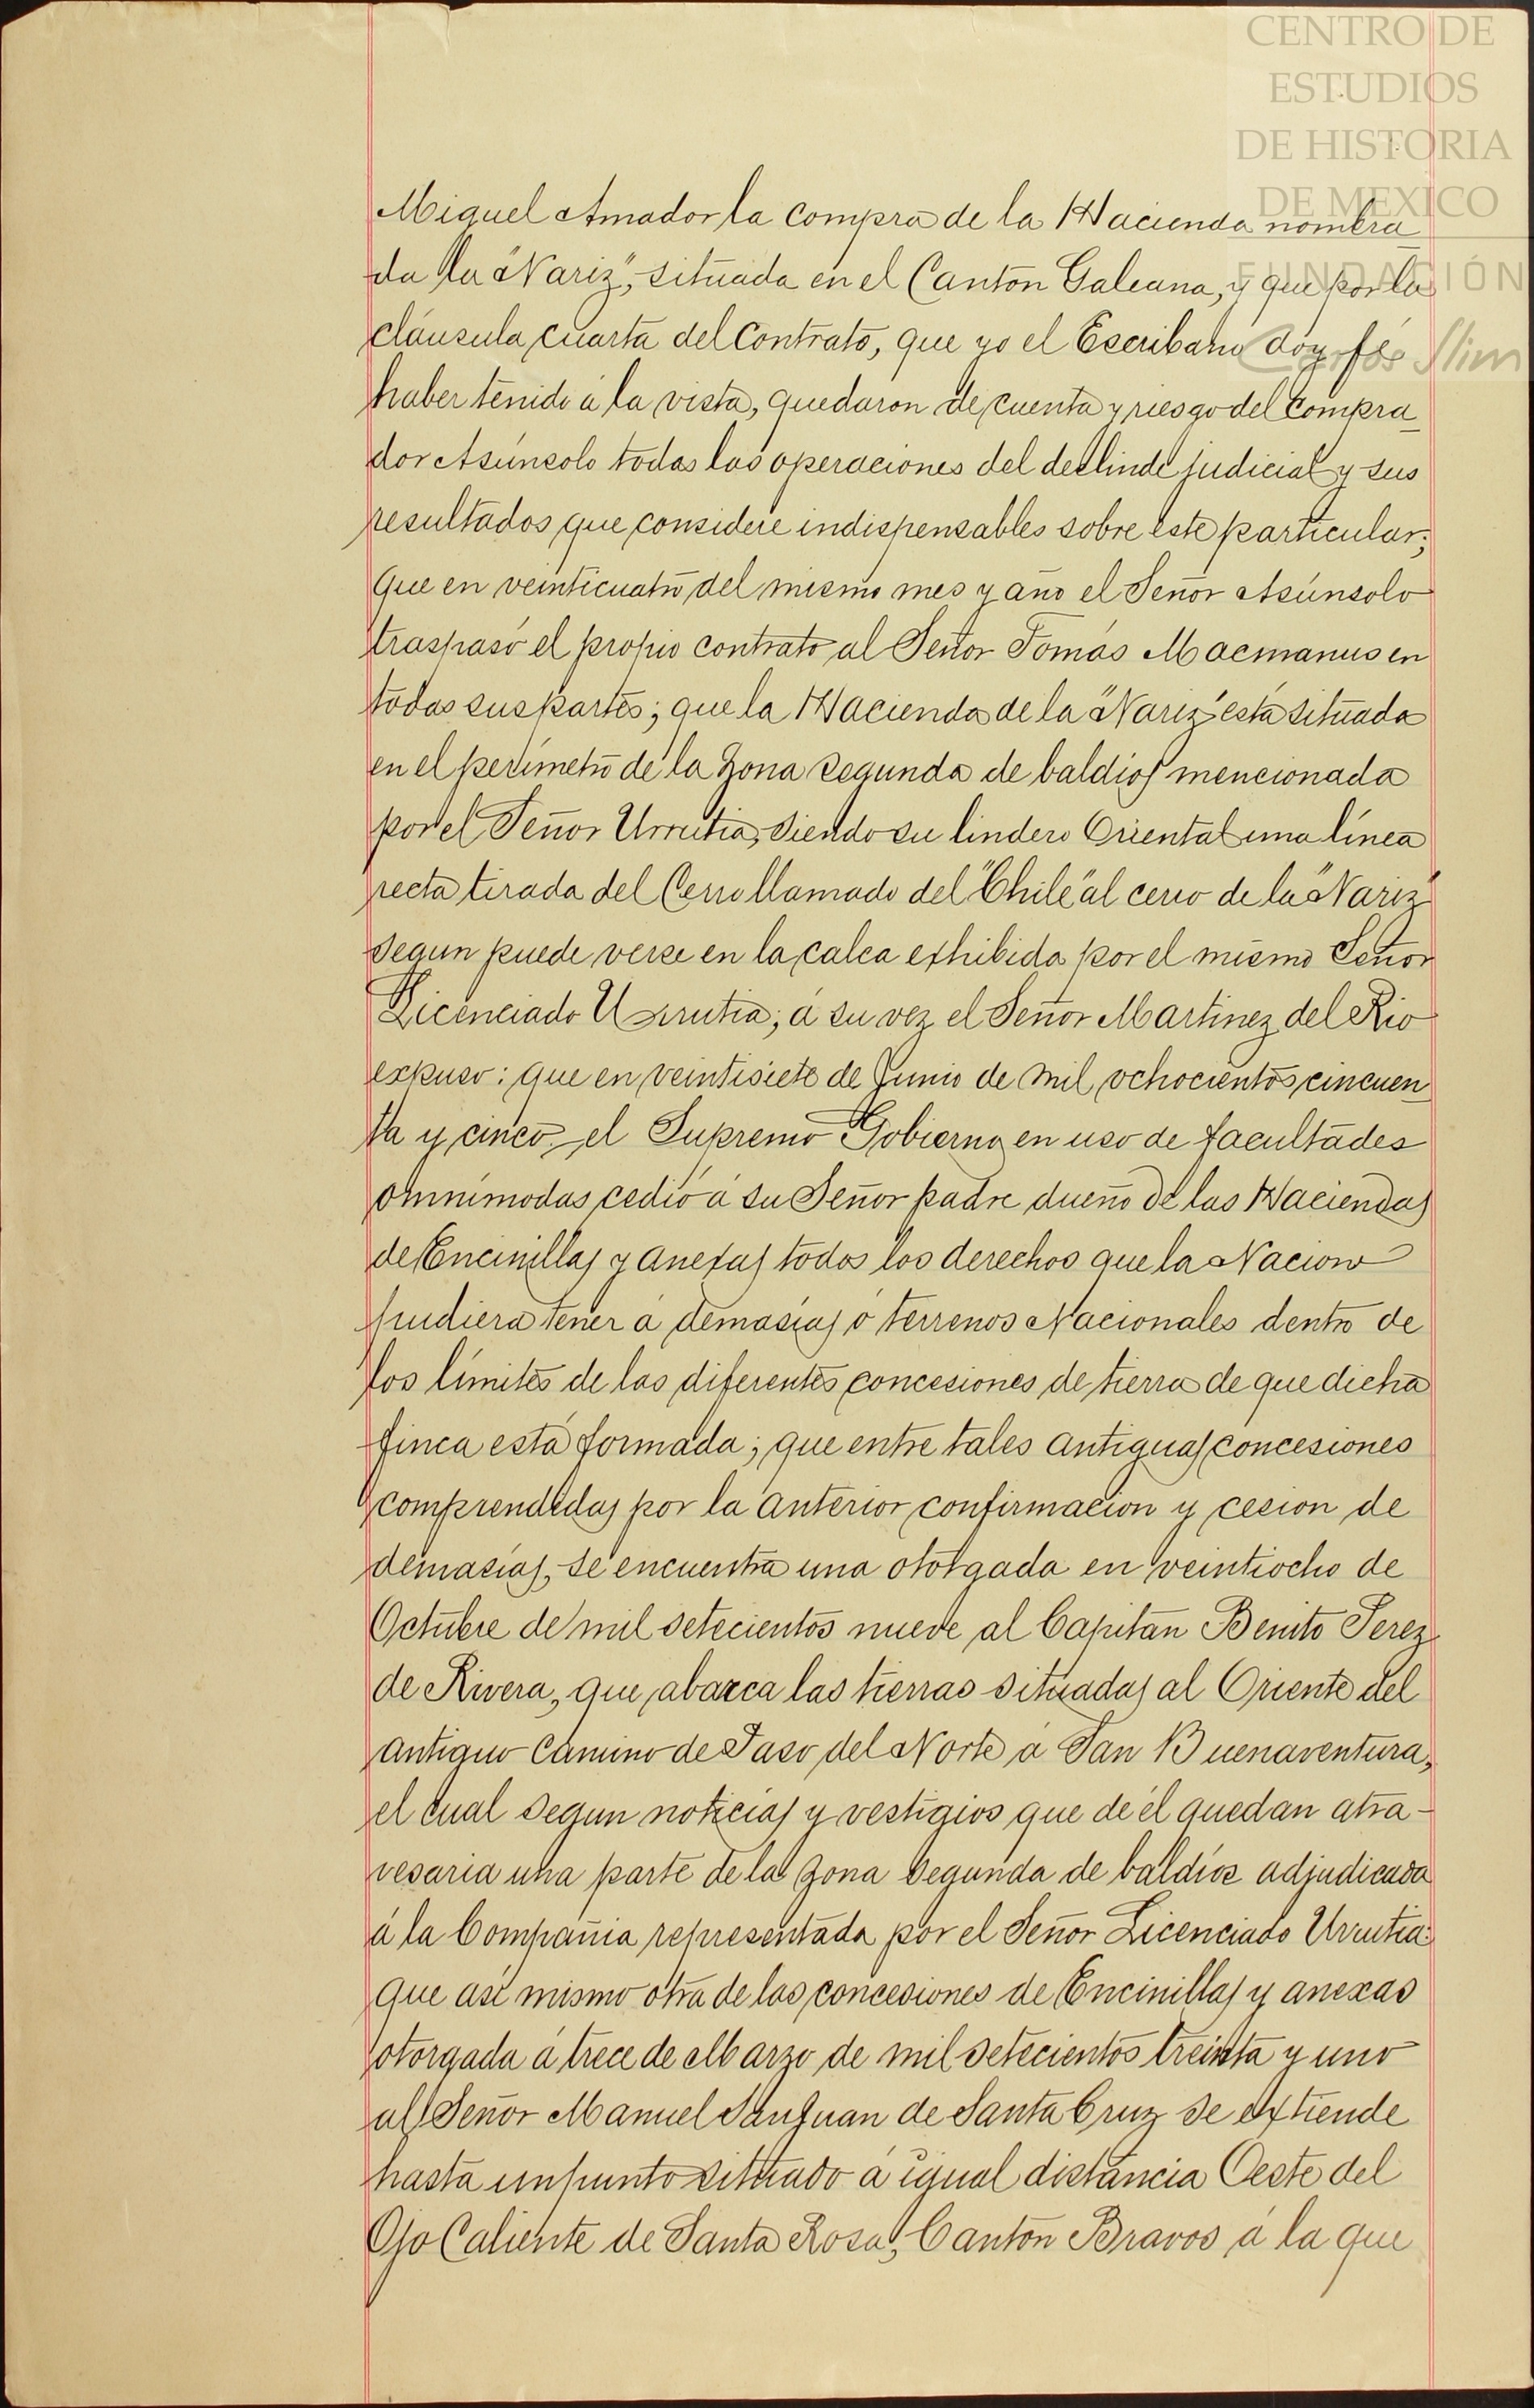 CENTRO DE
ESTUDIOS
DE HISTORIA
DE MEXICO
FUNDACIÓN
Carlos Slim
Miguel Amador la compra de la Hacienda nombra
da la "Nariz", situada en el Canton Galeana, y que por la
cláusula cuarta del Contrato, que yo el Escribano doy fé
haber tenido á la vista, quedaron de cuenta y riesgo del Compra_
dor Asúnsolo todas las operaciones del deslinde judicial y sus
resultados que considere indispensables sobre este particular;
que en veinticuatro del mismo mes y año el Señor Asúnsolo
traspasó el propio contrato al Señor Tomás Macmanus en
todas sus partes; que la Hacienda de la "Nariz" está situada
en el perímetro de la Zona segunda de baldios mencionada
por el Señor Urrutia, siendo su lindero Oriental una línea
recta tirada del Cerro llamado del "Chile" al cerro de la "Nariz"
segun puede verse en la calca exhibida por el mismo Señor
Licenciado Urrutia; á su vez el Señor Martinez del Rio
expuso: que en veintisiete de Junio de mil ochocientos cincuen_
ta y cinco el Supremo Gobierno en uso de facultades
omnímodas cedió á su Señor padre dueño de las Haciendas
de Encinillas y anexas todos los derechos que la Nacion
pudiera tener á demasías ó terrenos Nacionales dentro de
los límites de las diferentes concesiones de tierra de que dicha
finca está formada; que entre tales antiguas concesiones
comprendidas por la anterior confirmacion y cesion de
demasías, se encuentra una otorgada en veintiocho de
Octubre de mil setecientos nueve al Capitan Benito Perez
de Rivera, que abarca las tierras situadas al Oriente del
antiguo camino de Paso del Norte á San Buenaventura,
el cual segun noticias y vestigios que de él quedan atra-
vesaria una parte de la Zona segunda de baldíos adjudicada
á la Compañia representada por el Señor Licenciado Urrutia:
que asi mismo otra de las concesiones de Encinillas y anexas
otorgada á trece de Marzo de mil setecientos treinta y uno
al Señor Manuel San Juan de Santa Cruz se extiende
hasta un punto situado á igual distancia Oeste del
Ojo Caliente de Santa Rosa, Canton Bravos á la que